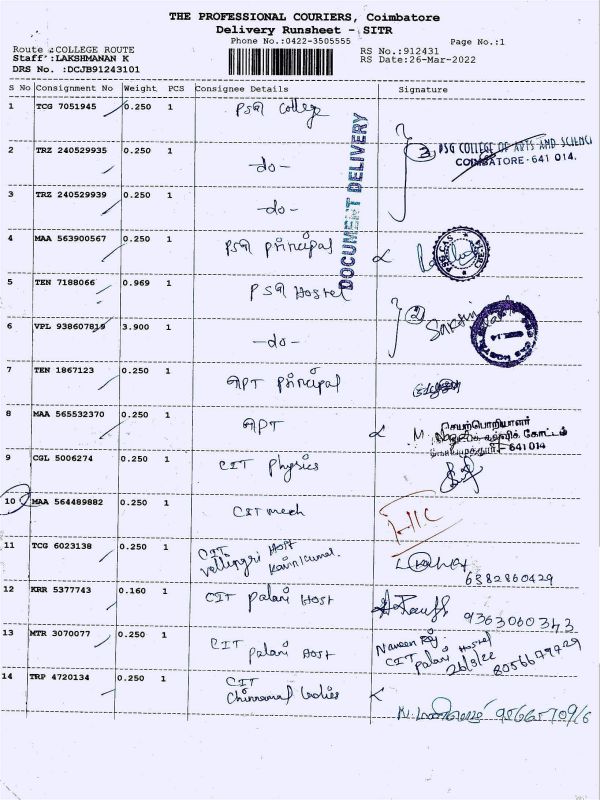 THE PROFESSIONAL COURIERS, Coimbatore
Delivery Runsheet - SITR
Phone No.:0422-3505555
Page No.:1
Route :COLLEGE ROUTE
Staff :LAKSHMANAN K
DRS No. :DCJB91243101
RS No.:912431
RS Date:26-Mar-2022
S No Consignment No Weight PCS Consignee Details Signature
1 TCG 7051945 0.250 1 PSG College
DOCUMENT DELIVERY
3 PSG COLLEGE OF ARTS AND SCIENC
COIMBATORE - 641 014.
2 TRZ 240529935 0.250 1 -do-
3 TRZ 240529939 0.250 1 -do-
4 MAA 563900567 0.250 1 PSG Principal
5 TEN 7188066 0.969 1 PSG Hostel
2
6 VPL 938607819 3.900 1 -do-
7 TEN 1867123 0.250 1 GPT Principal
8 MAA 565532370 0.250 1 GPT
செயற்பொறியாளர்
கோட்டம்
641 014
9 CGL 5006274 0.250 1 CIT Physics
10 MAA 564489882 0.250 1 CIT mech
11 TCG 6023138 0.250 1 CIT Host
Kavinkumar.
6382860429
12 KRR 5377743 0.160 1 CIT Palani Host
9363060343
13 MTR 3070077 0.250 1 CIT
Palani Host
Naveen Raj
CIT Palani Hostel
26/3/22 8056679729
14 TRP 4720134 0.250 1 CIT
Chinnamal ladies